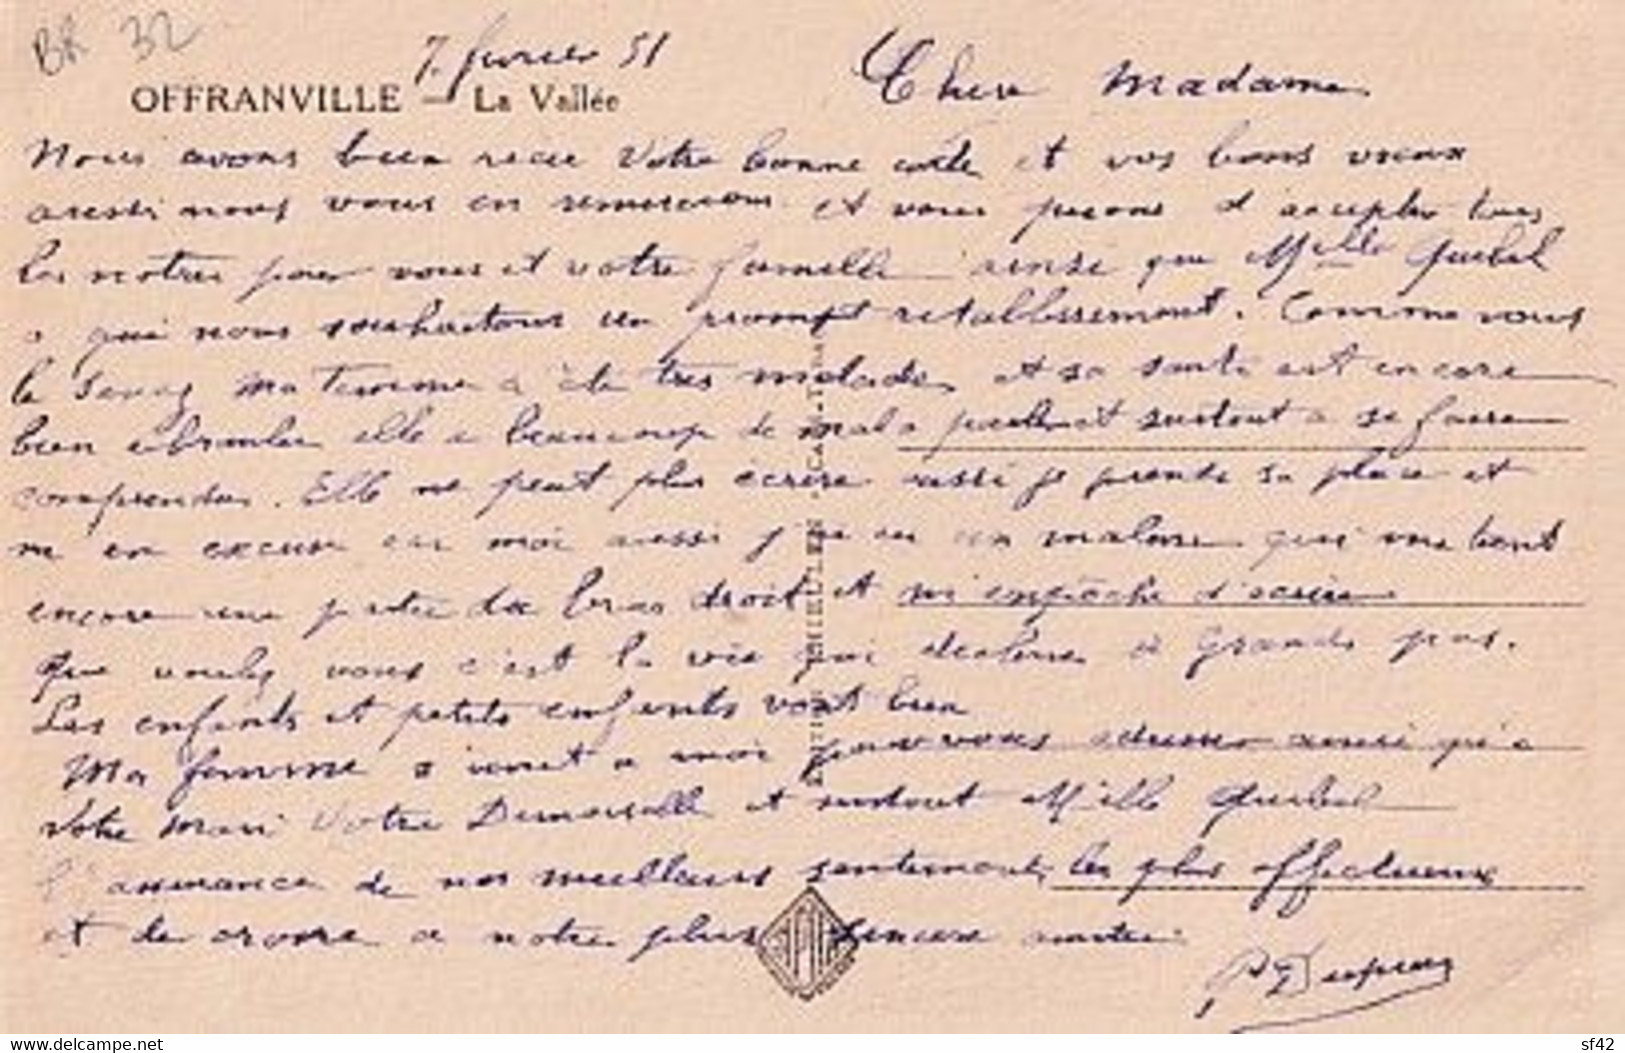 BR 32
7 fevrier 51
OFFRANVILLE — La Vallée
Chere Madame
Nous avons bien recu votre bonne carte et vos bons vœux
aussi nous vous en remercions et vous prions d'accepter tous
les notres pour vous et votre famille ainsi que Melle Quibel
a qui nous souhaitons un prompt retablissement. Comme vous
le savez ma femme a été tres malade et sa santé est encore
bien ebranlée elle a beaucoup de mal a parler et surtout a se faire
comprendre. Elle ne peut plus écrire aussi je prends sa place et
m'en excuse car moi aussi j'ai eu un malaise qui me tient
encore une partie du bras droit et m'empêche d'ecrire
Que voulez vous c'est la vie qui decline à grands pas.
Les enfants et petits enfants vont bien
Ma femme s'unit a moi pour vous adresser ainsi qu'a
votre mari votre Demoiselle et surtout Melle Quibel
l'assurance de nos meilleurs sentiments les plus affectueux
et de croire a notre plus sincere amitié
EDITION THIEULLEN
delcampe.net
sf42